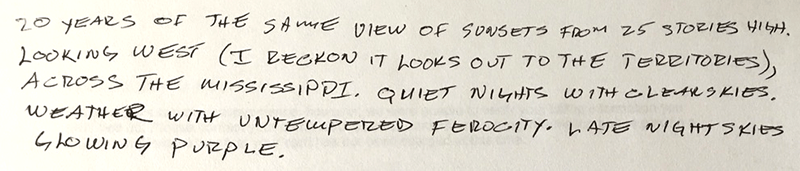 20 YEARS OF THE SAME VIEW OF SUNSETS FROM 25 STORIES HIGH.
LOOKING WEST (I RECKON IT LOOKS OUT TO THE TERRITORIES),
ACROSS THE MISSISSIPPI. QUIET NIGHTS WITH CLEAR SKIES.
WEATHER WITH UNTEMPERED FEROCITY. LATE NIGHT SKIES
GLOWING PURPLE.